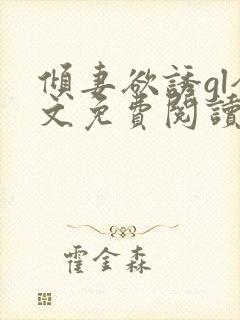 傾妻欲誘gl全
文免費閱讀
霍金森